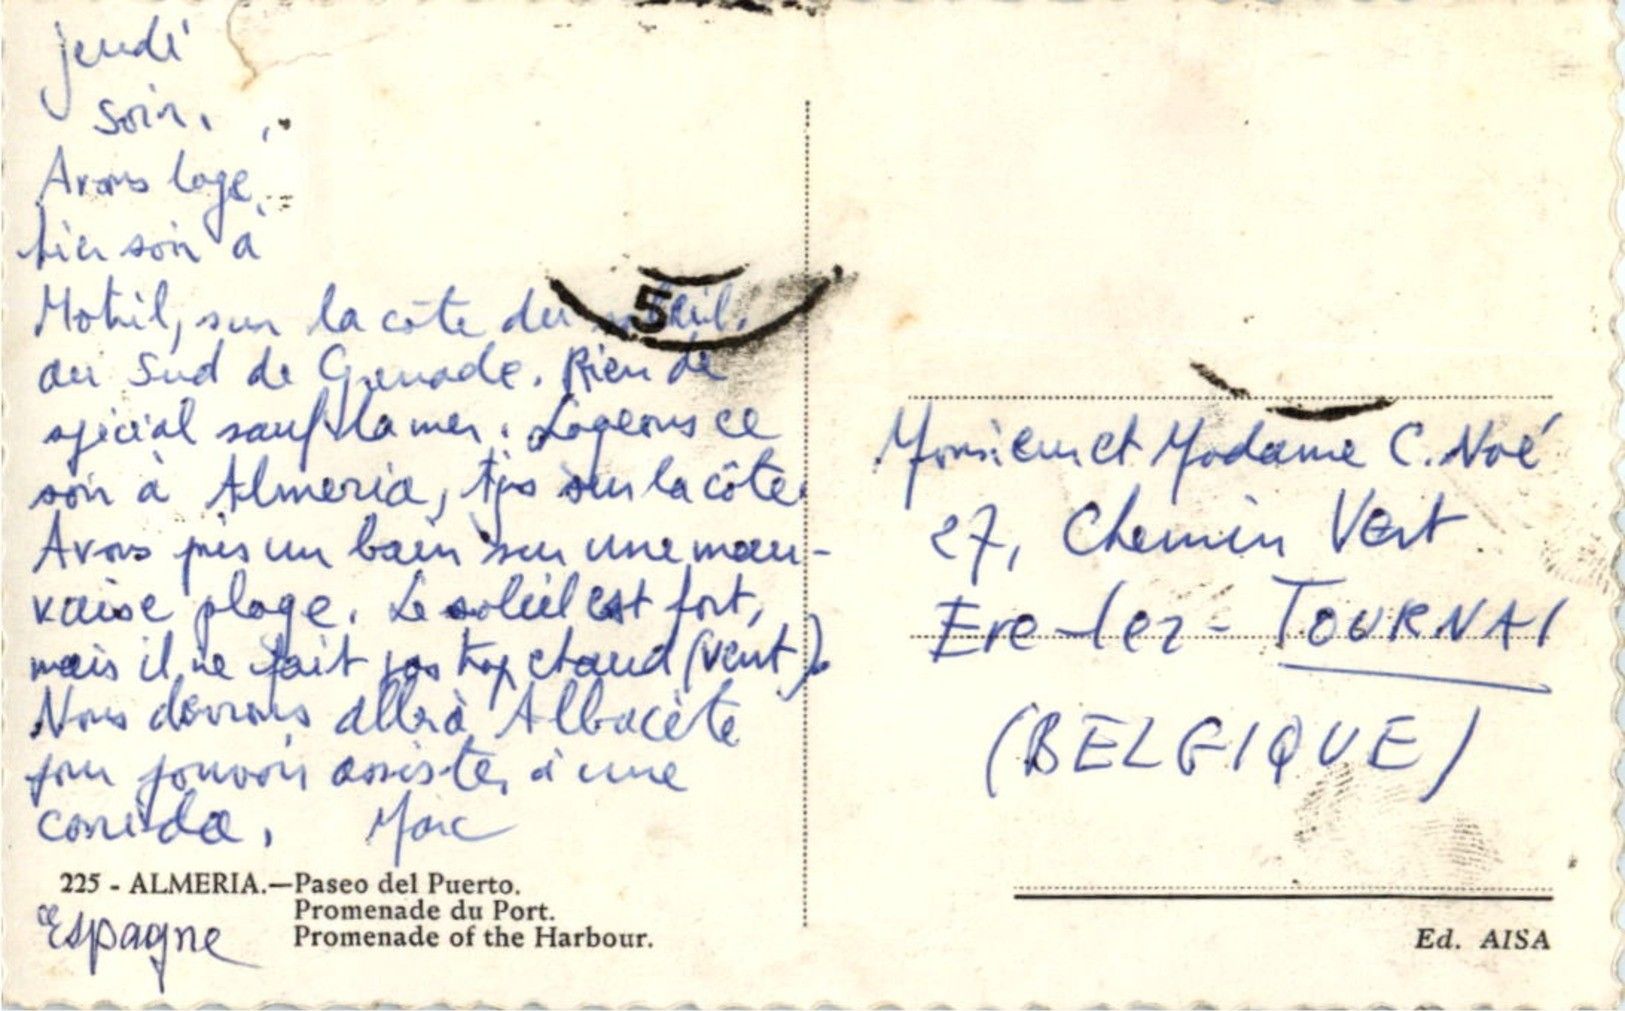 jeudi
soir.
Avons logé
hier soir à
Motril, sur la côte du soleil,
au Sud de Grenade. Rien de
spécial sauf la mer. Logeons ce
soir à Almeria, tjs sur la côte.
Avons pris un bain sur une mau-
vaise plage. Le soleil est fort,
mais il ne fait pas trop chaud (vent).
Nous devrons aller à Albacète
pour pouvoir assister à une
corrida. Marc
225 - ALMERIA.—Paseo del Puerto.
Promenade du Port.
Promenade of the Harbour.
Espagne
5
Monsieur et Madame C. Noé
27, Chemin Vert
Ere-lez-TOURNAI
(BELGIQUE)
Ed. AISA